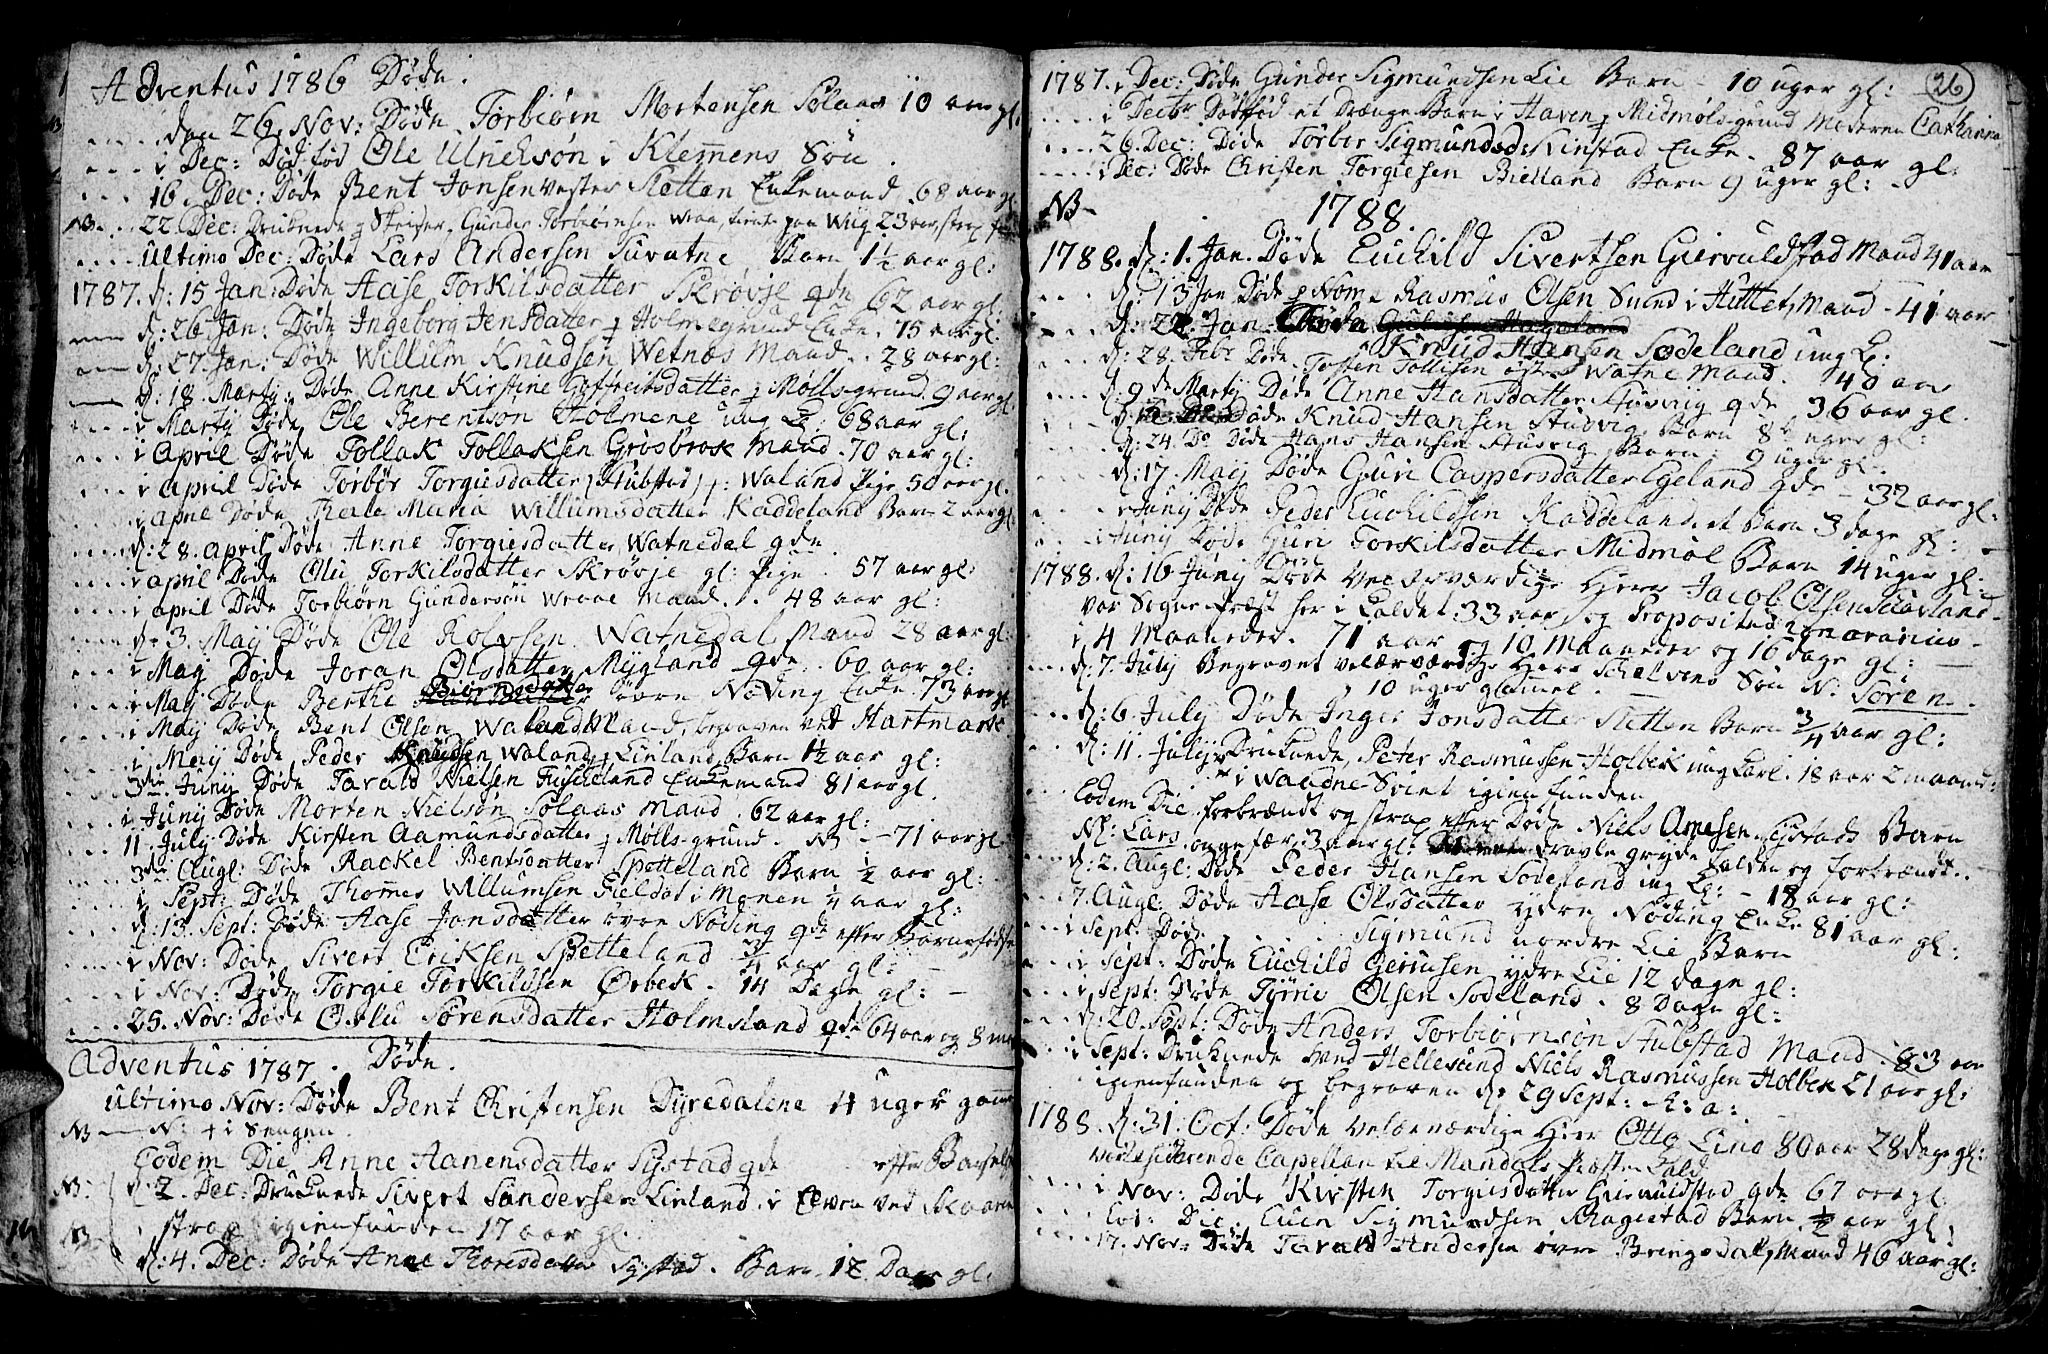 Adventus 1786 Døde.
den 26. Nov: Døde Torbiørn Mortensen Sølaas 10 aar gl.
i Dec: Død fød Ole Ulrichsøn i Klemens Søn
16. Dec: Døde Bent Jonsen vester Sletten Enkemand 68 aar gl
NB 22. Dec: Druknede Gunder Torbiørnsen Wraa, 23 aar, strax
ultimo Dec: Døde Lars Andersen Suvatne Barn 1½ aar gl:
1787. d: 15 Jan: Døde Aase Torkilsdatter Skrøvje gde 62 aar gl:
d: 26 Jan: Døde Ingeborg Jensdatter Holmegrund Enke. 75 aar gl:
d: 27. Jan: Døde Willum Knudsen Wetnæs Mand. 28 aar gl:
d: 18. Martij Døde Anne Kirstine Gotfreitsdatter Mølls-grund. 9 aar gl.
i Martij Døde Ole Berentsøn Holmene ung K. 68 aar gl:
i April Døde Tollak Tollaksen Grosbrok Mand 70 aar gl:
i April Døde Torbør Torgiesdatter Stubstad Waland Pige 50 aar gl.
i April Døde Maria Willumsdatter Kaddeland Barn 2 aar gl
d: 28. April Døde Anne Torgiesdatter Watnedal gde
i April Døde Olu Torkilsdatter Skrøvje gl: Pige 57 aar gl:
i April Døde Torbiørn Gundersøn Wraae Mand. 48 aar gl:
d: 3. Maij Døde Ole Rolvsen Watnedal Mand 28 aar gl:
i Maij Døde Joran Olsdatter Mygland gde. 60 aar gl:
i Maij Døde Berthe Biørnsdatter øvre Nøding Enke 73 aar gl
i Maij Døde Bent Olsen Waland Mand, begraven ved Hartmark
i Maij Døde Peder Knudsen Waland Linland Barn 1½ aar gl:
3die Junij Døde Tarald Nielsen Fuskeland Enkemand 81 aar gl
i Junij Døde Morten Nielsøn Sølaas Mand. 62 aar gl:
11. July Døde Kirsten Aamundsdatter Mølls-grund. NB - 71 aar gl
3die Augl: Døde Rackel Bentsdatter Spetteland Barn ½ aar gl:
i Sept: Døde Thomes Willumsen Fieldet i Monen ½ aar gl:
d: 13. Sept: Døde Aase Jonsdatter øvre Nøding gde efter Barnefødse
i Nov: Døde Sivert Eriksen Spetteland ¾ aar gl:
i Nov: Døde Torgie Torkildsen Ørbek. 14 Dage gl:
25. Nov: Døde Oslu Sørensdatter Holmsland gde 64 aar og 8 m
Adventus 1787. Døde.
ultimo Nov: Døde Bent Christensen Dyredalene 4 uger gam
NB N: + i Sengen.
Eodem Die Anne Aanensdatter Sÿstad gde efter Barsel
NB: d: 2. Dec: Druknede Sivert Sandersen Linland. i Elven ved Skaaren
NB strax igienfunden 17 aar gl.
d: 4. Dec: Døde Anne Thoresdatter Sÿstad. Barn 12 Dage gl:
26
1787. i Dec: Døde Gunder Sigmundsen Lie Barn 10 uger gl:
i Decbr Dødfød et Drænge Barn i Haven Midmøls-grund Moderen Cathanna
26. Dec: Døde Torbor Sigmundsd: Kinstad Enke. 87 aar gl:
i Dec: Døde Christen Torgiesen Bielland Barn 9 uger gl:
NB 1788.
1788. d: 1. Jan. Døde Euchild Sivertsen Giervuldstad Mand 41 aar
d: 13 Jan Døde Rasmus Olsen Sund i Huttet Mand - 41 aar
d: 22. Jan: Døde
Knud Hansen Sødeland ung K:
d: 28. Febr Døde Tosten Tollisen øster Watne Mand. 40 aar
d: 9de Martij Døde Anne Hansdatter Stusvig gde 36 aar gl.
Døde Knud Hansen Studvig Barn 8 uger gl:
d: 24. Do Døde Hans Hansen Stusvig Barn: 9 uger gl:
d: 17 Maij Døde Guri Caspersdatter Egeland gde - 32 aar gl:
i Junij Døde Peder Euchildsen Kaddeland, et Barn 3 dage gl:
i Junij Døde Guri Torkilsdatter Midmøl Barn 14 uger gl:
1788. d: 16 Junij Døde Velærværdige Herr Jacob Olsen Suarland
vor Sogne-Præst her i Kaldet 33 aar, og Præpositus honorarius
i 4 Maaneder. 71 aar og 10 Maaneder og 16 dage gl:
d: 7. July Begravet velærværdige Herr Schelvens Søn N: Søren
10 uger gammel.
d: 6 July Døde Inger Jonsdatter Sletten Barn ¾ aar gl:
d: 11 July Druknede, Peter Rasmussen Holbek ung karl. 18 aar 2 maaned:
i Waadne-Svint igienfunden
Eodem Die forbrændt og strax efter Døde Niels Arnesen Sÿstads Barn
N: Lars ongefær 3 aar gl: Gravle gryde falden og forbrændt.
d: 2. Augl: Døde Peder Hansen Sødeland ung K: - 18 aar gl:
7. Augl. Døde Aase Olsdatter ydre Nøding Enke 81 aar gl:
i Sept: Døde Sigmund nordre Lie Barn
i Sept: Døde Euchild Geruisen ydre Lie 12 dage gl:
i Sept: Døde Tørris Olsen Sødeland. 8 Dage gl:
d: 20. Sept: Døde Anders Torbiørnsøn Stubstad Mand. 83 aar
i Sept: Druknede ved Hellesund Niels Rasmussen Holbek 21 aar gl:
igienfunden og begraven d: 29 Sept: h: a:
1788. d: 31. Oct: Døde velærværdige Herr Otto Lind 80 aar 28 dage gl:
værlesiderende Capellan til Mandals Præste Kald
i Nov: Døde Kirsten Torgiesdatter Giervuldstad gde 67 aar gl
Eod: Die: Euen Sigmundsen Skagestad Barn ½ aar gl:
17. Nov: Døde Tarald Andersen øvre Bringsdal, Mand 46 aar gl: